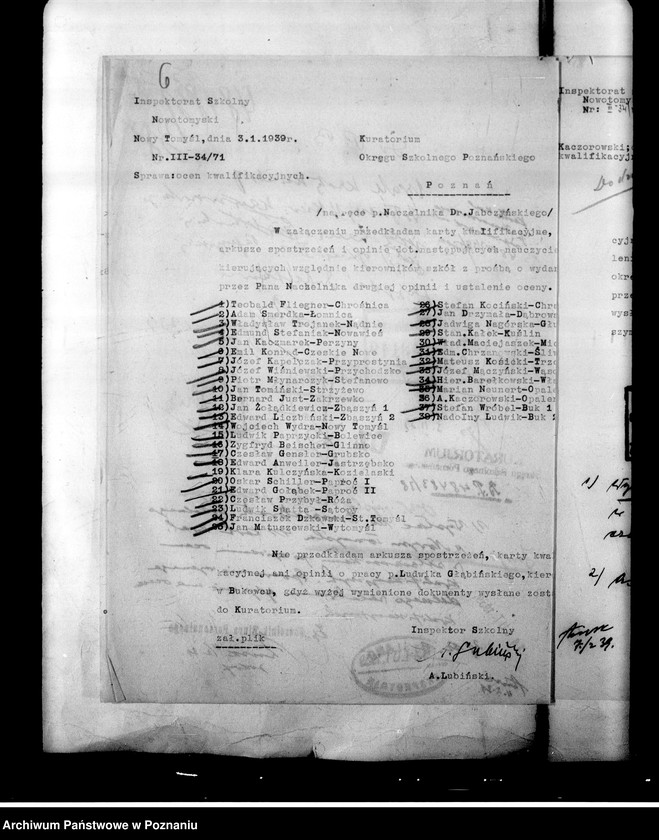 6
Inspektorat Szkolny
Nowotomyski
Nowy Tomyśl,dnia 3.1.1939r.
Nr.III-34/71
Sprawa:ocen kwalifikacyjnych.
Kuratorium
Okręgu Szkolnego Poznańskiego
Poznań
/na ręce p.Naczelnika Dr.Jabczyńskiego/
W załączeniu przedkładam karty kwalifikacyjne,
arkusze spostrzeżeń i opinie dot.następujących nauczycie
kierujących względnie kierowników szkół z prośbą o wydan
przez Pana Nachelnika drugiej opinii i ustalenie oceny.
1)Teobald Fliegner-Chrośnica
2)Adam Smerdka-Łomnica
3)Władysław Trojanek-Nądnie
4)Edmund Stefaniak-Nowawieś
5)Jan Kaczmarek-Perzyny
6)Emil Konrad-Czeskie Nowe
7)Józef Kapelczak-Przyprostynia
8)Józef Wiśniewski-Przychodzko
9)Piotr Młynarczyk-Stefanowo
10)Jan Tomiński-Strzyżewo
11)Bernard Just-Zakrzewko
12)Jan Żołądkiewicz-Zbąszyń 1
13)Edward Liczbański-Zbąszyń 2
14)Wojciech Wydra-Nowy Tomyśl
15)Ludwik Paprzycki-Bolewice
16)Zygfryd Beischer-Glinno
17)Czesław Gensler-Grubsko
18)Edward Anweiler-Jastrzębsko
19)Klara Kulczyńska-Kozielaski
20)Oskar Schiller-Paproć I
21)Edward Gołąbek-Paproć II
22)Czesław Przybył-Róża
23)Ludwik Szajta-Sątopy
24)Franciszek Dzkowski-St.Tomyśl
25)Jan Matuszewski-Wytomyśl
26)Stefan Kociński-Chra
27)Jan Drzymała-Dąbrown
28)Jadwiga Nagórska-Głu
29)Stan.Kałek-Kuślin
30)Wład.Maciejaszek-Mic
31)Edm.Chrzanowski-Śliw
32)Mateusz Kosicki-Trze
33)Józef Mączyński-Wąso
34)Hier.Barełkowski-Wła
35)Marian Neunert-Opale
36)A.Kaczorowski-Opalen
37)Stefan Wróbel-Buk 1
38)Nadolny Ludwik-Buk
Nie przedkładam arkusza spostrzeżeń, karty kwa
kacyjnej ani opinii o pracy p.Ludwika Głąbińskiego,kier
w Bukowcu, gdyż wyżej wymienione dokumenty wysłane zost
do Kuratorium.
zał.plik
Inspektor Szkolny
A.Lubiński.
Inspektorat
Nowotomy
Nr:
Kaczorowski;
kwalifikacyj
cyj
leni
okre
prze
wysł
szyn
1)
2)
7/2 39.
Archiwum Państwowe w Poznaniu